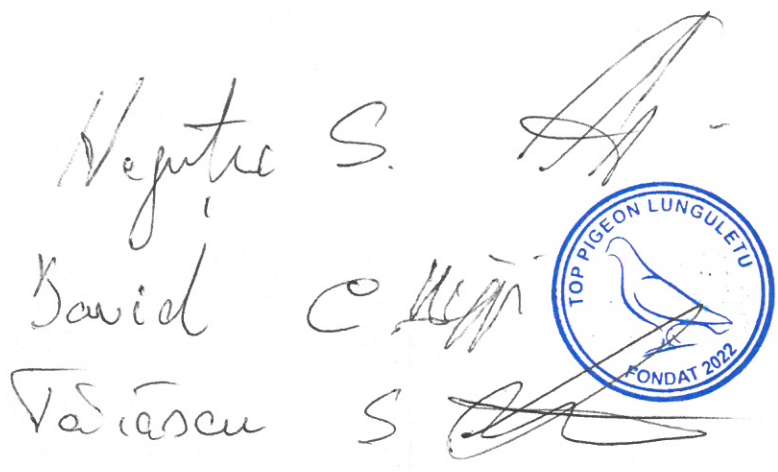 Neguțu S.
David C
S
TOP PIGEON LUNGULETU
FONDAT 2022